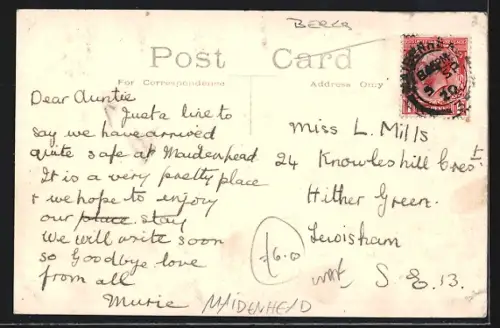 BERKS
Post Card
For Correspondence
Address Only
Dear Auntie
Just a line to
say we have arrived
quite safe at Maidenhead
It is a very pretty place
& we hope to enjoy
our place stay
We will write soon
so Goodbye love
from all
Murie
Miss L. Mills
24 Knowleshill Crest
Hither Green.
Lewisham
S.E.13.
£6.0
MAIDENHEAD